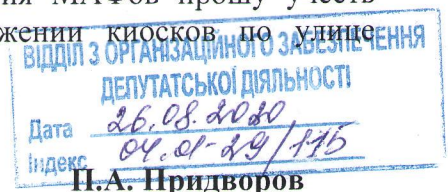 ия МАФов прошу учесть
жении киосков по улице
ВІДДІЛ З ОРГАНІЗАЦІЙНОГО ЗАБЕЗПЕЧЕННЯ
ДЕПУТАТСЬКОЇ ДІЯЛЬНОСТІ
Дата 26.08.2020
Індекс 04.01-29/115
П.А. Придворов